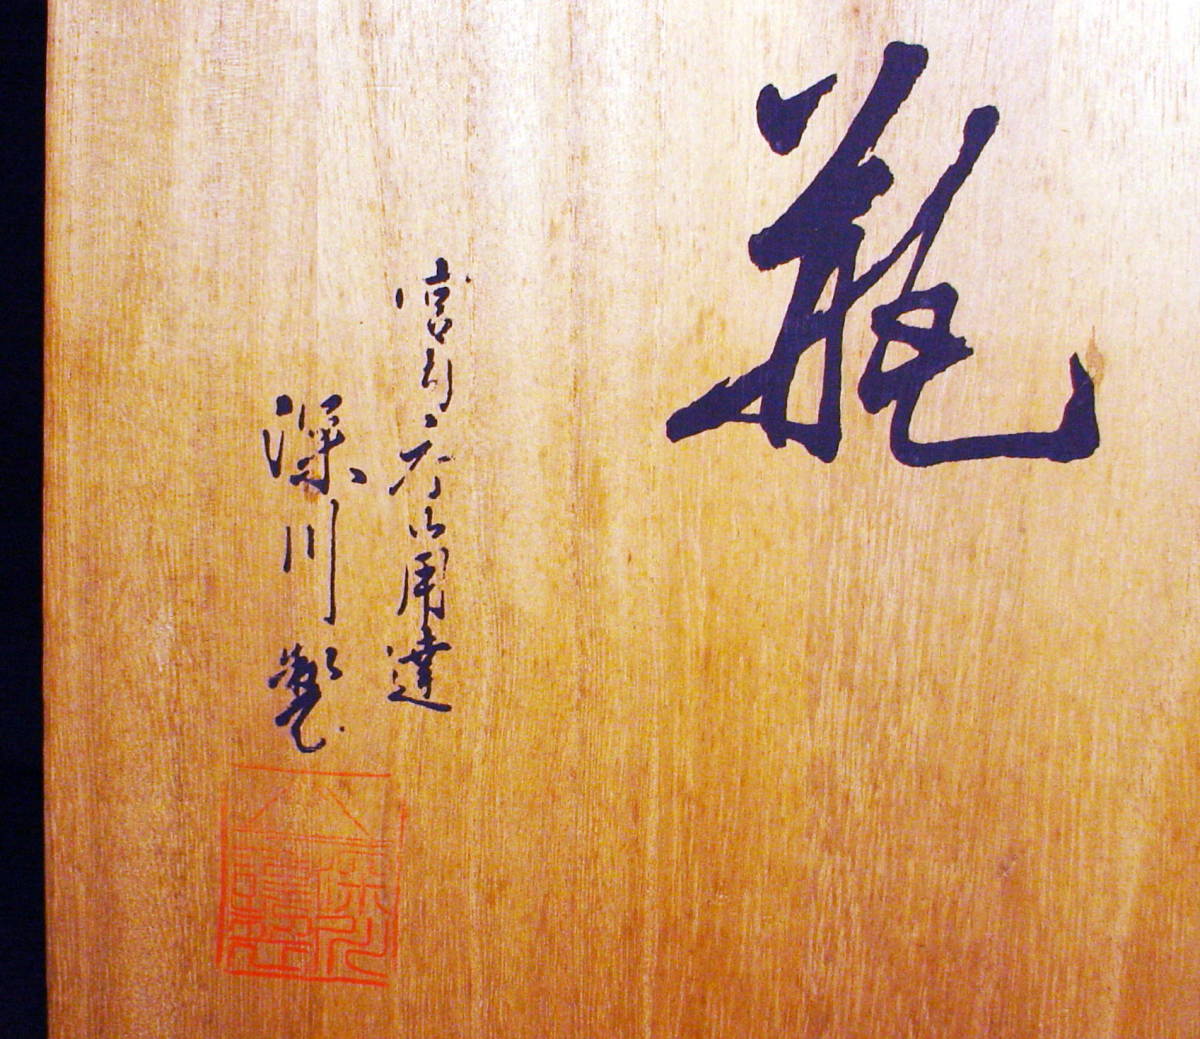 瓶
宮内庁御用達
深川製